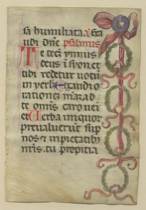 sa humiliata Ex
audi dne psalmus
Te decet ymnus
deus in syon et
tibi reddetur votu
in exaudi o
rationem mea ad
te omnis caro veni
et Verba iniquor
prevaluerut sup
nos et impietatib
nostris tu propitia